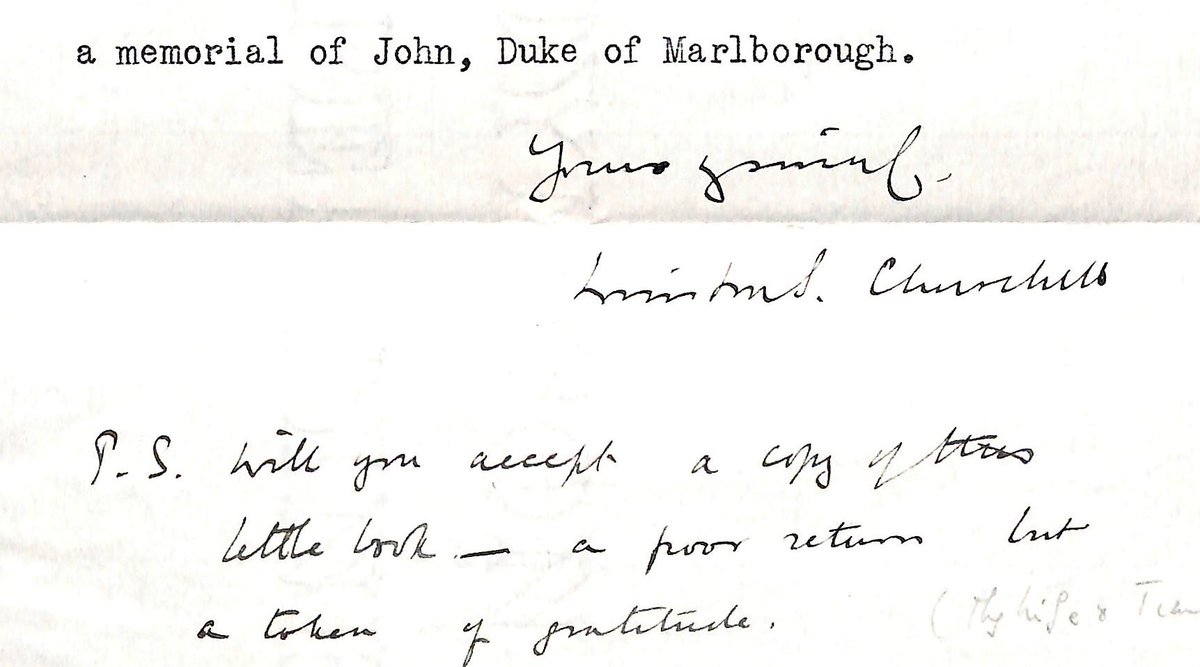 a memorial of John, Duke of Marlborough.
Yours
Winston S. Churchill
P.S. Will you accept a copy of this
little book — a poor return but
a token of gratitude.
(My Life &